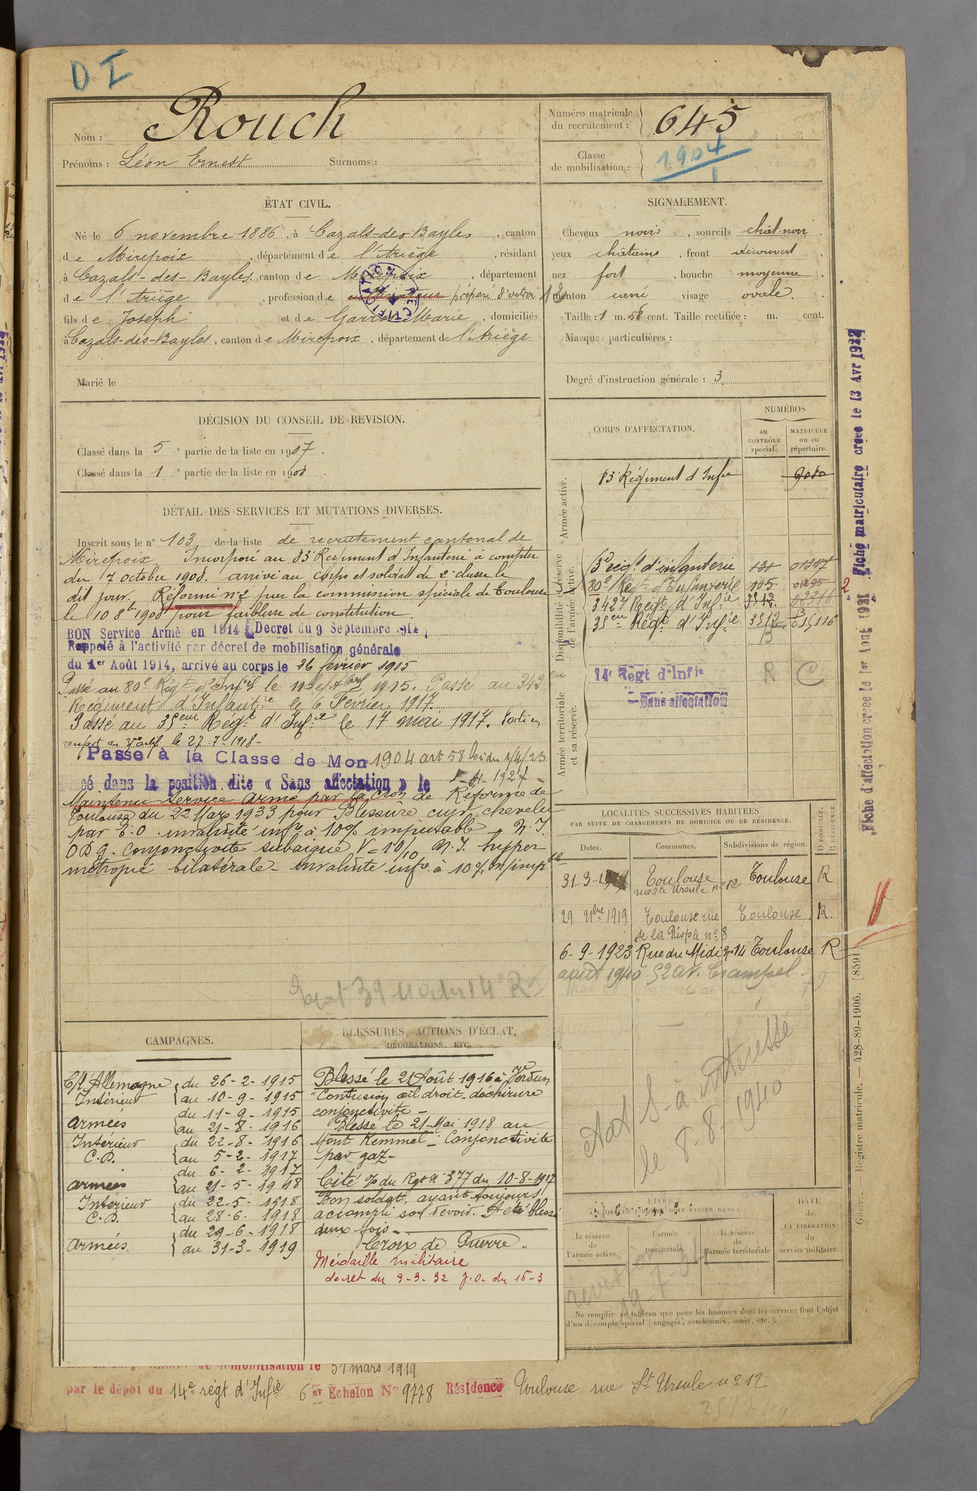 D I
Nom : Rouch
Prénoms : Léon Ernest Surnoms :
Numéro matricule du recrutement : 645
Classe de mobilisation : 1904
ÉTAT CIVIL.
Né le 6 novembre 1886, à Cazals-des-Bayles, canton
de Mirepoix, département de l'Ariège, résidant
à Cazals-des-Bayles, canton de Mirepoix, département
de l'Ariège, profession de cultivateur préposé d'octroi
fils de Joseph et de Marie, domiciliés
à Cazals-des-Bayles, canton de Mirepoix, département de l'Ariège
Marié le
SIGNALEMENT.
Cheveux noirs, sourcils chât-noir
yeux châtains, front découvert
nez fort, bouche moyenne
menton carré visage ovale.
Taille : 1 m. 58 cent. Taille rectifiée : m. cent.
Marques particulières :
Degré d'instruction générale : 3
DÉCISION DU CONSEIL DE REVISION.
Classé dans la 5e partie de la liste en 1907.
Classé dans la 1 e partie de la liste en 1908
DÉTAIL DES SERVICES ET MUTATIONS DIVERSES.
Inscrit sous le n° 103 de la liste de recrutement cantonal de
Mirepoix Incorporé au 83e Régiment d'Infanterie à compter
du 7 octobre 1908. arrivé au corps et soldat de 2e classe le
dit jour. Réformé n° 2 par la commission spéciale de Toulouse
le 10 8bre 1908 pour faiblesse de constitution
BON Service Armé en 1914 (Décret du 9 Septembre 1914)
Rappelé à l'activité par décret de mobilisation générale
du 1er Août 1914, arrivé au corps le 26 février 1915
Passé au 80e Régt d'Infie le 11 septbre 1915. Passé au 342
Régiment d'Infantie le 6 Février 1917.
Passé au 35eme Régt d'Infie le 17 mai 1917.
le 27-7-1918-
Passé à la Classe de Mon 1904 art 58 loi du 1/4/23
cé dans la position dite « Sans affectation » le
1927
Maintenu service armé par la Cion de Réforme de
Toulouse du 22 Mars 1933 pour Blessure cuir chevelu
par E.O. invalidité infre à 10% imputable N.I.
O D G. Conjonctivite subaigue V = 10/10 N.I. hyper
métropie bilatérale - invalidité infre à 10% N/imp
CORPS D'AFFECTATION.
NUMÉROS
au CONTRÔLE spécial.
MATRICULE ou au répertoire.
Armée active.
83 Régiment d'Infie
Disponibilité et réserve de l'armée active.
80e Régt d'Infanterie 105
342e Régt d'Infie
35em Régt d'Infie
Armée territoriale et sa réserve.
14e Régt d'Infie
— Sans affectation
LOCALITÉS SUCCESSIVES HABITÉES
PAR SUITE DE CHANGEMENTS DE DOMICILE OU DE RÉSIDENCE.
Dates. Communes. Subdivisions de région. DOMICILE RÉSIDENCE
31-3-19 Toulouse rue Ste Ursule n° 12 Toulouse R
29 9bre 1919 Toulouse rue de la n° 8 Toulouse R.
6-9-1923 Rue du Midi n° 14 Toulouse R
août 1940 52 av. Crampel
le 8-8-1940
CAMPAGNES.
Ct/ Allemagne du 26-2-1915
Intérieur au 10-9-1915
du 11-9-1915
Armées au 21-8-1916
Intérieur du 22-8-1916
C.D. au 5-2-1917
du 6-2-1917
armées au 21-5-1918
Intérieur du 22-5-1918
C.D. au 28-6-1918
du 29-6-1918
Armées au 31-3-1919
BLESSURES, ACTIONS D'ÉCLAT,
DÉCORATIONS, ETC.
Blessé le 21 Août 1916 à Verdun
"Contusion œil droit déchirure
conjonctivite -
Blessé le 21 Mai 1918 au
Mont Kemmel - Conjonctivite
par gaz -
Cité O du Rgt n° 377 du 10-8-1917
Bon soldat, ayant toujours
accompli son devoir. A été blessé
deux fois -
Croix de Guerre.
Médaille militaire
décret du 9-3-32 J.O. du 15-3
ÉPOQUE
la réserve de l'armée active. l'armée territoriale. la réserve de l'armée territoriale
DATE DE LA LIBÉRATION du service militaire.
Ne remplir ce tableau que pour les hommes dont les services font l'objet
d'un décompte spécial (engagés, condamnés, omis, etc.).
démobilisation le 31 mars 1919
par le dépôt du 14e régt d'Infie 6e Échelon N° 9778 Résidence Toulouse rue Ste Ursule n° 12
Fiche d'affectation créée le 1er Août 1921
Fiche matriculaire créée le 13 Avr 1922
Registre matricule. — 428-89-1906. [859]